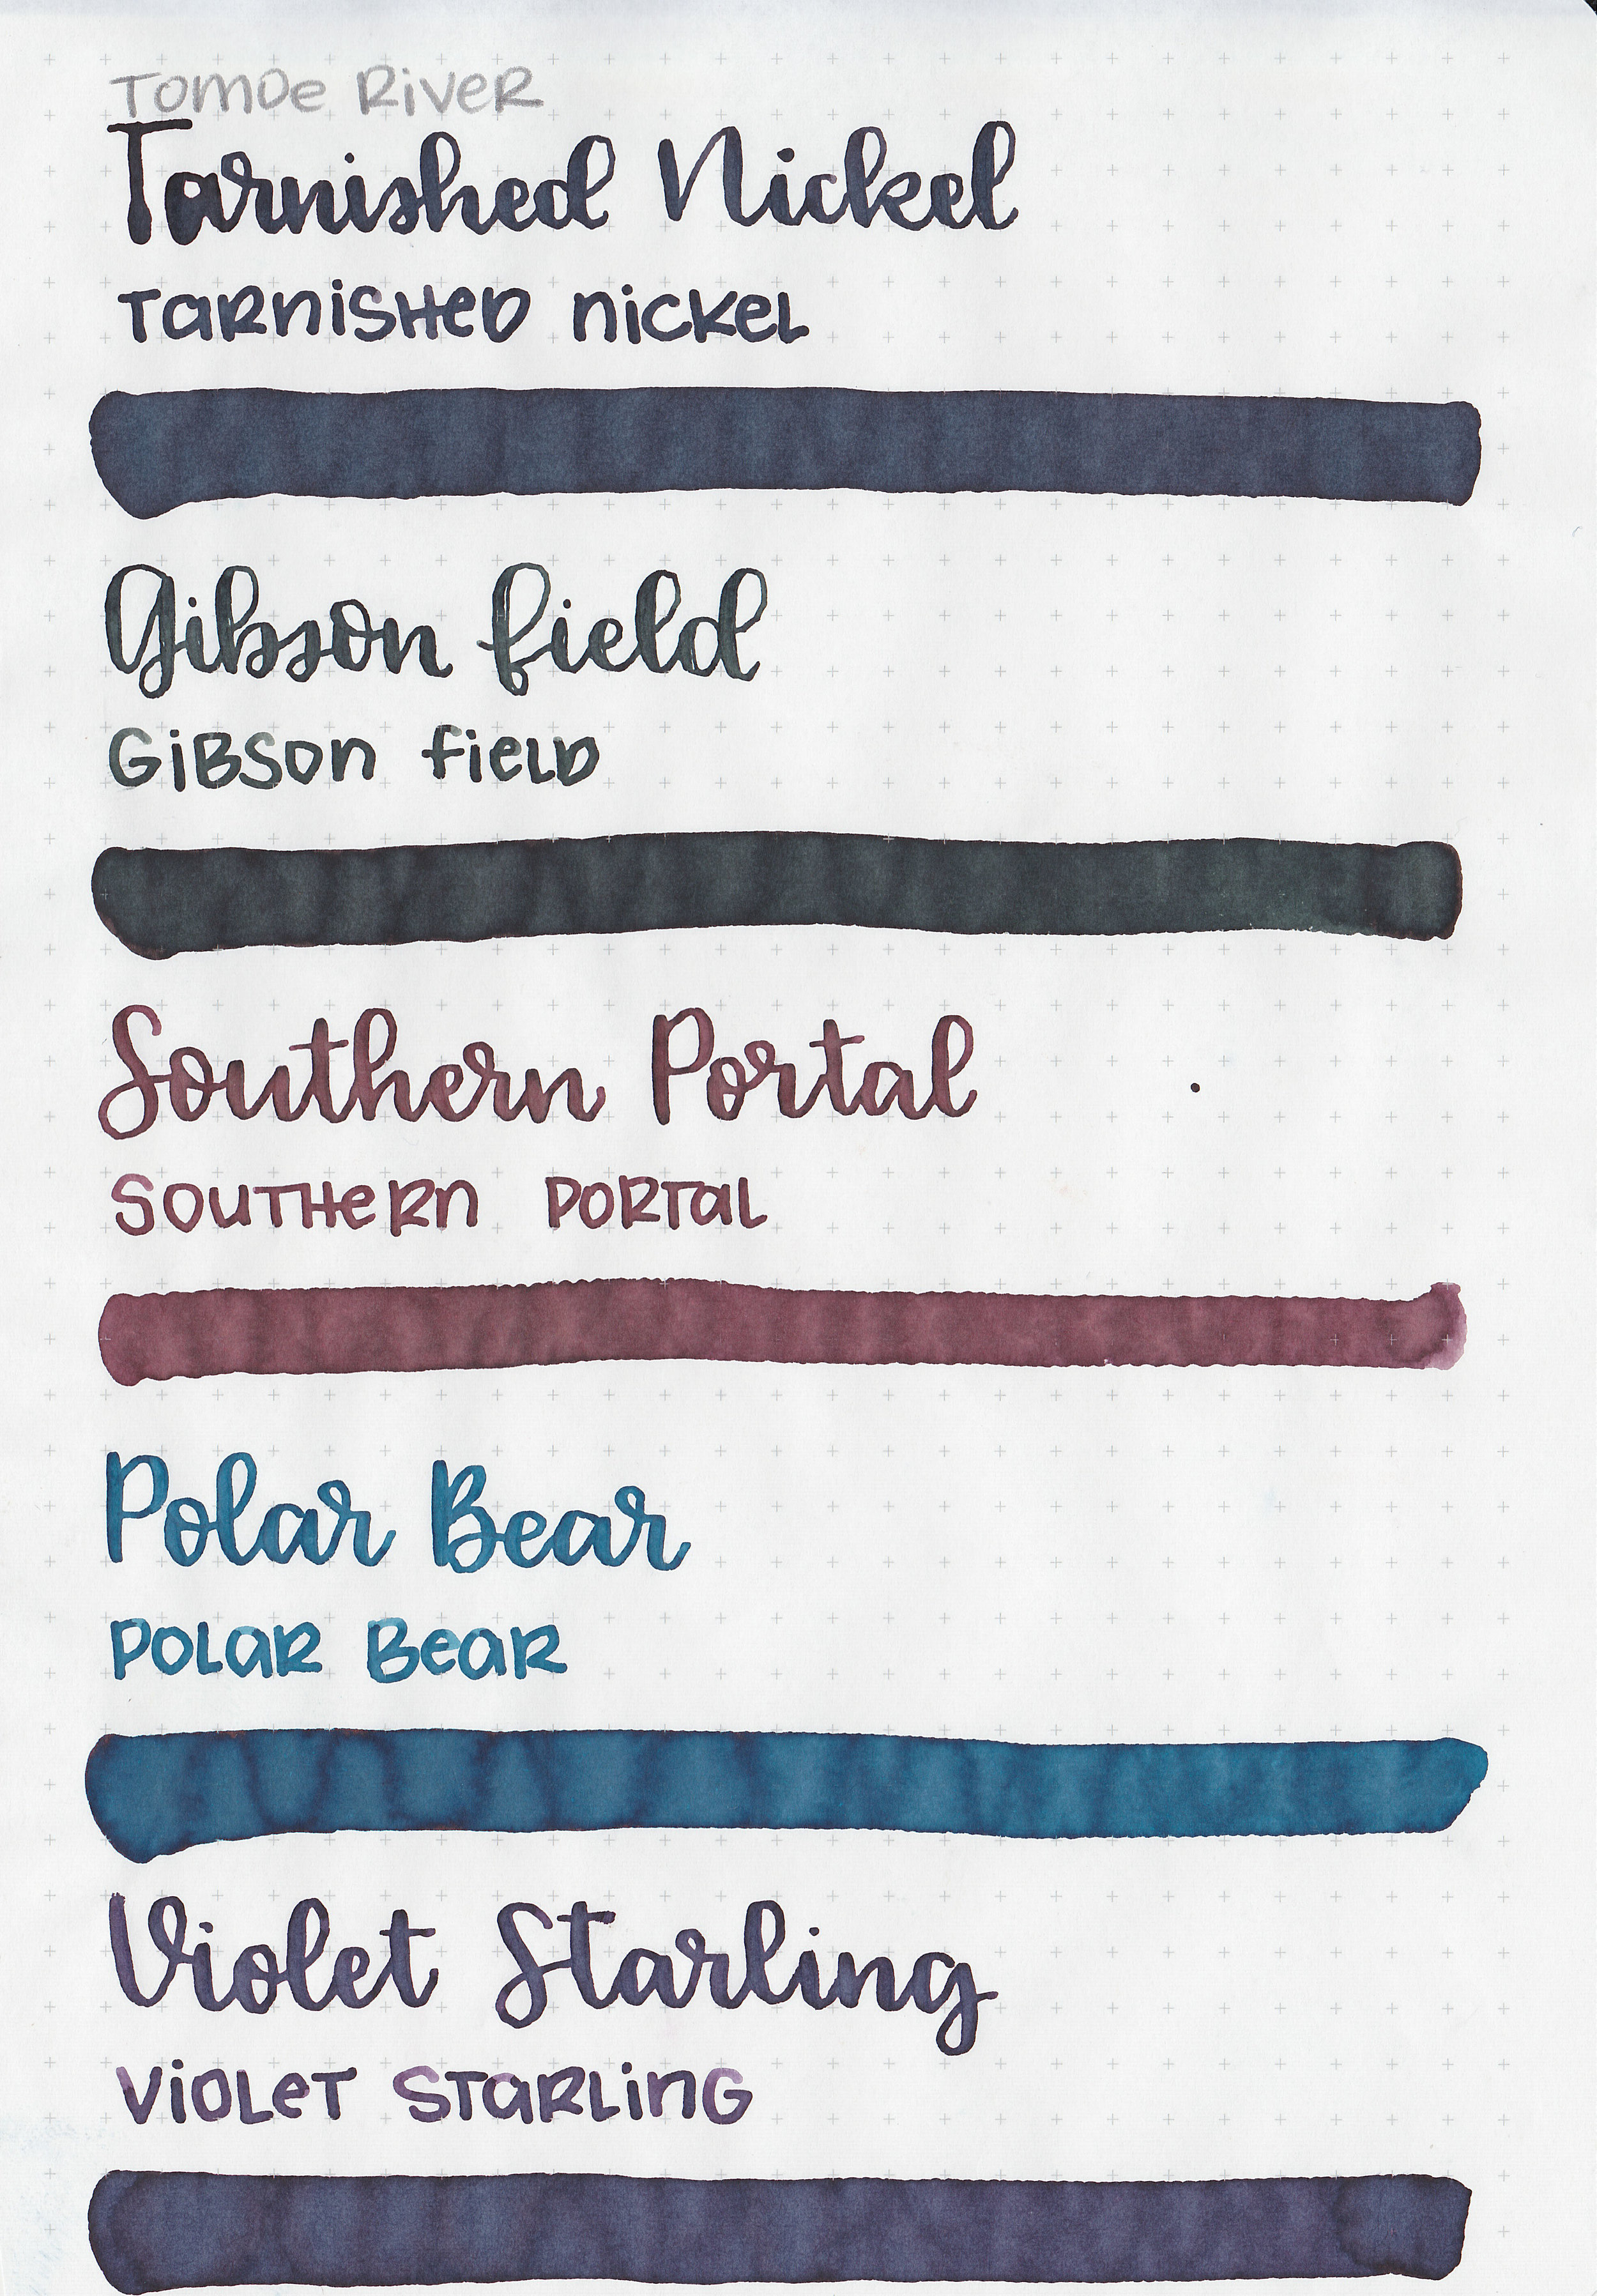 Tomoe River
Tarnished Nickel
Tarnished Nickel
Gibson field
Gibson field
Southern Portal
Southern Portal
Polar Bear
Polar Bear
Violet Starling
Violet Starling